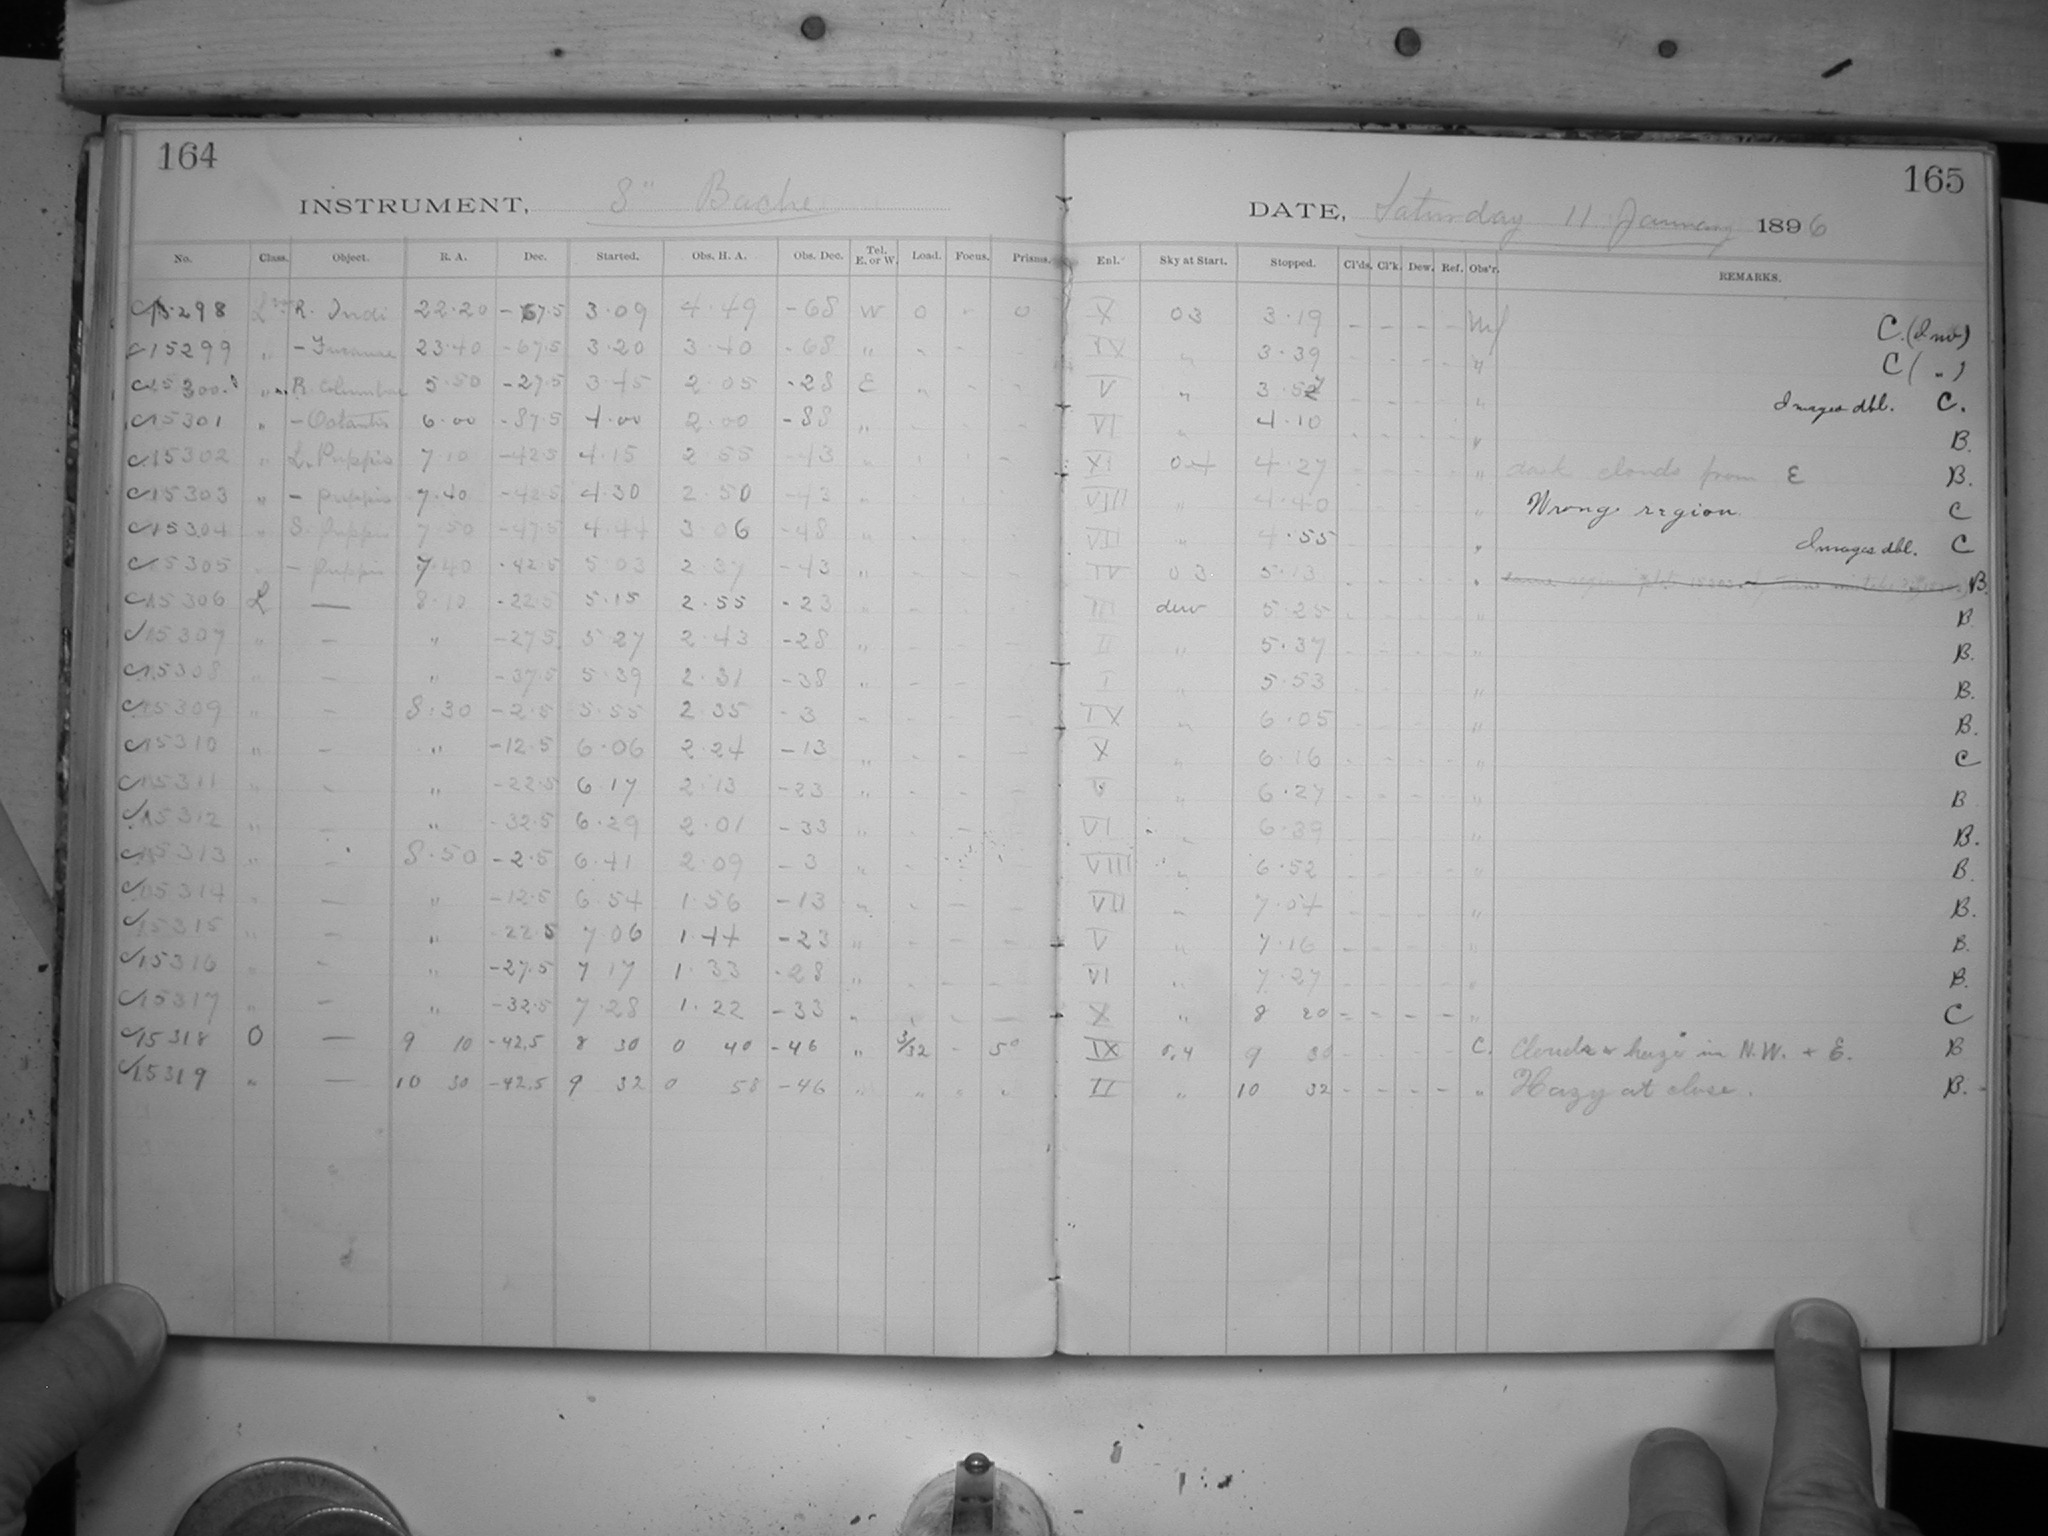 164
INSTRUMENT, 8" Bache
No. Class. Object. R. A. Dec. Started. Obs. H. A. Obs. Dec. Tel. E. or W. Load. Focus. Prisms.
C15298 R. Indi 22.20 -67.5 3.09 4.49 -68 W 0 - 0
C15299 " - 23.40 -67.5 3.20 3.40 -68 " - -
C15300 " R. Columbae 5.50 -27.5 3.45 2.05 -28 E
C15301 " - Octantis 6.00 -87.5 4.00 2.00 -88 "
C15302 " L. Puppis 7.10 -42.5 4.15 2.55 -43 "
C15303 " - puppis 7.40 -42.5 4.30 2.50 -43 "
C15304 " S. Puppis 7.50 -47.5 4.44 3.06 -48 "
C15305 " - puppis 7.40 -42.5 5.03 2.37 -43 "
C15306 L — 8.10 -22.5 5.15 2.55 -23 "
C15307 " — " -27.5 5.27 2.43 -28 "
C15308 " — " -37.5 5.39 2.31 -38 " - - -
C15309 " — 8.30 -2.5 5.55 2.35 -3 - - - -
C15310 " — " -12.5 6.06 2.24 -13 " - - -
C15311 " - " -22.5 6.17 2.13 -23 " - - -
C15312 " — " -32.5 6.29 2.01 -33 " - - -
C15313 " — 8.50 -2.5 6.41 2.09 -3 " - - -
C15314 " — " -12.5 6.54 1.56 -13 " - - -
C15315 " — " -22.5 7.06 1.44 -23 " - - -
C15316 " - " -27.5 7.17 1.33 -28 " - - -
C15317 " — " -32.5 7.28 1.22 -33 " - - -
C15318 O — 9 10 -42.5 8 30 0 40 -46 " 3/32 - 5°
C15319 " — 10 30 -42.5 9 32 0 58 -46 " " " "
165
DATE, Saturday 11 January 1896
Enl. Sky at Start. Stopped. Cl'ds. Cl'k. Dew. Ref. Obs'r. REMARKS.
X 03 3.19 - - - - C.
IX " 3.39 - - - - " C ( " )
V " 3.57 - - - - " Images dbl. C.
VI " 4.10 - - - - " B.
XI 04 4.27 - - - - " dark clouds from E B.
VIII " 4.40 - - - - " Wrong region C
VII " 4.55 - - - - " Images dbl. C
IV 03 5.13 - - - - " B.
III dew 5.25 - - - - " B
II " 5.37 - - - - " B.
I " 5.53 - - - - " B.
IX " 6.05 - - - - " B.
X " 6.16 - - - - " C
V " 6.27 - - - - " B
VI " 6.39 - - - - " B.
VIII " 6.52 - - - - " B.
VII " 7.04 - - - - " B.
V " 7.16 - - - - " B.
VI " 7.27 - - - - " B.
X " 8 20 - - - - " C
IX 0,4 9 30 - - - - C. Clouds & haze in N.W. + E. B
II " 10 32 - - - - " Hazy at close. B.